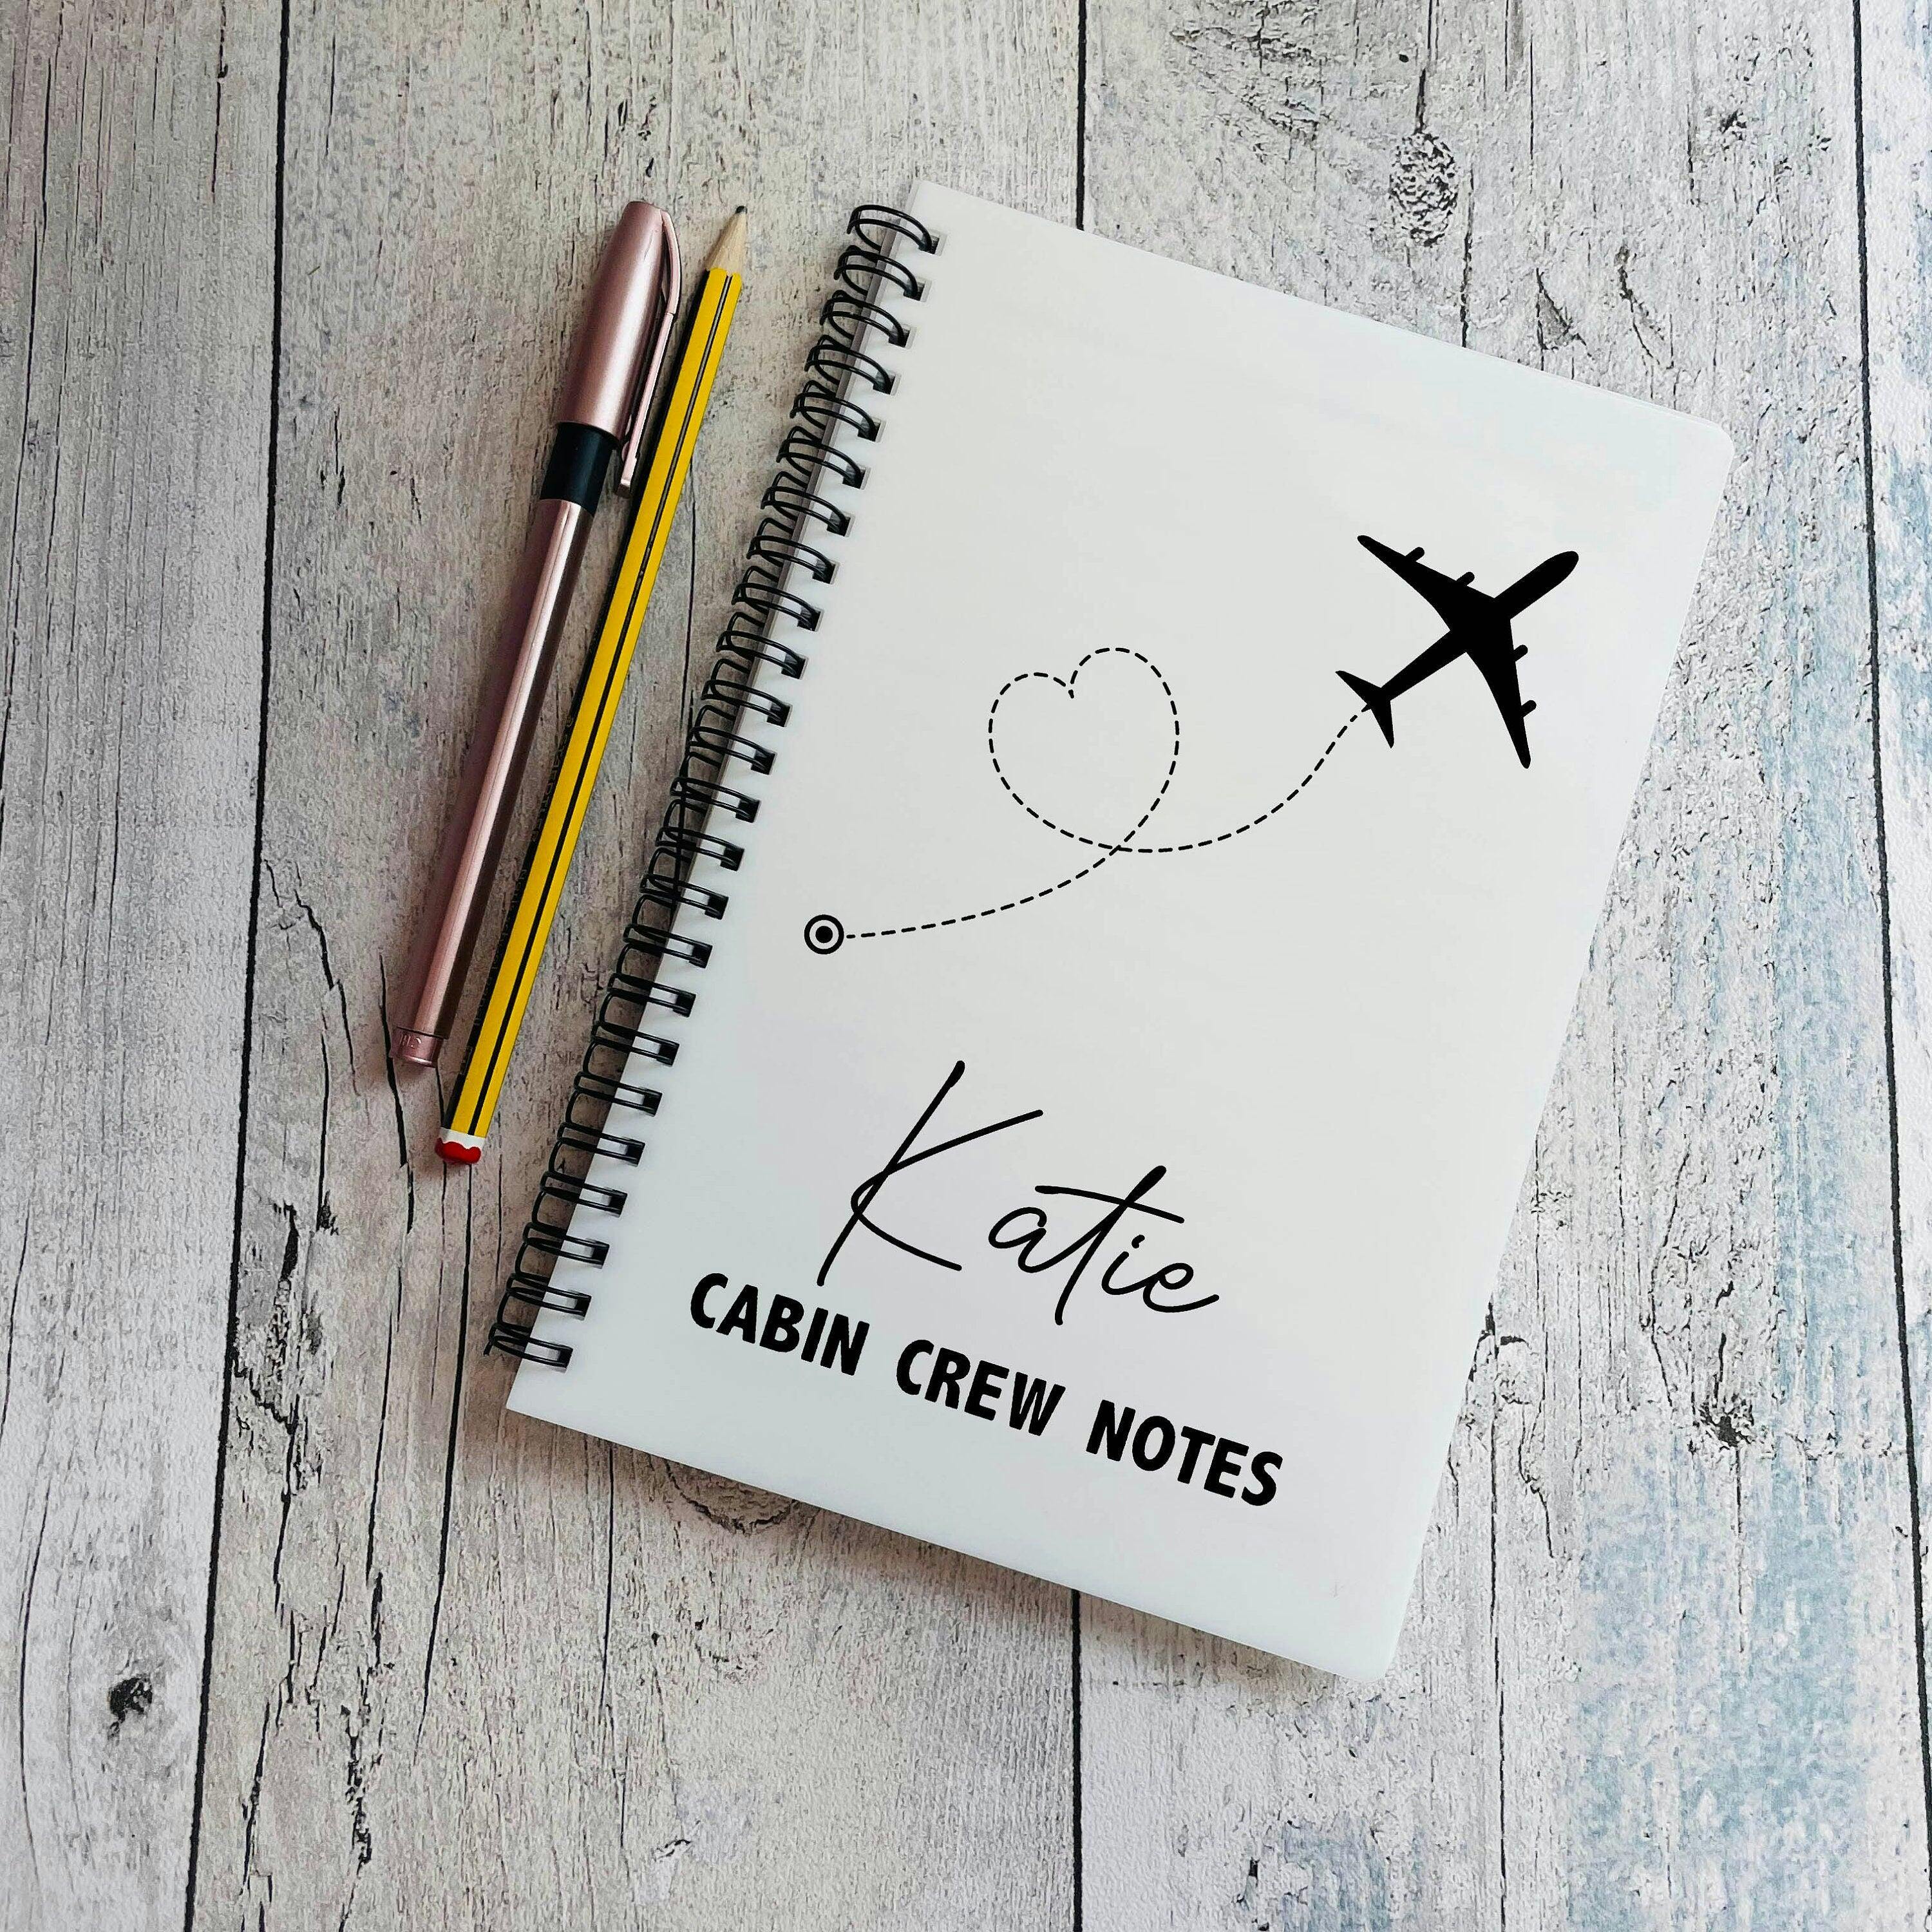 Katie
CABIN CREW NOTES